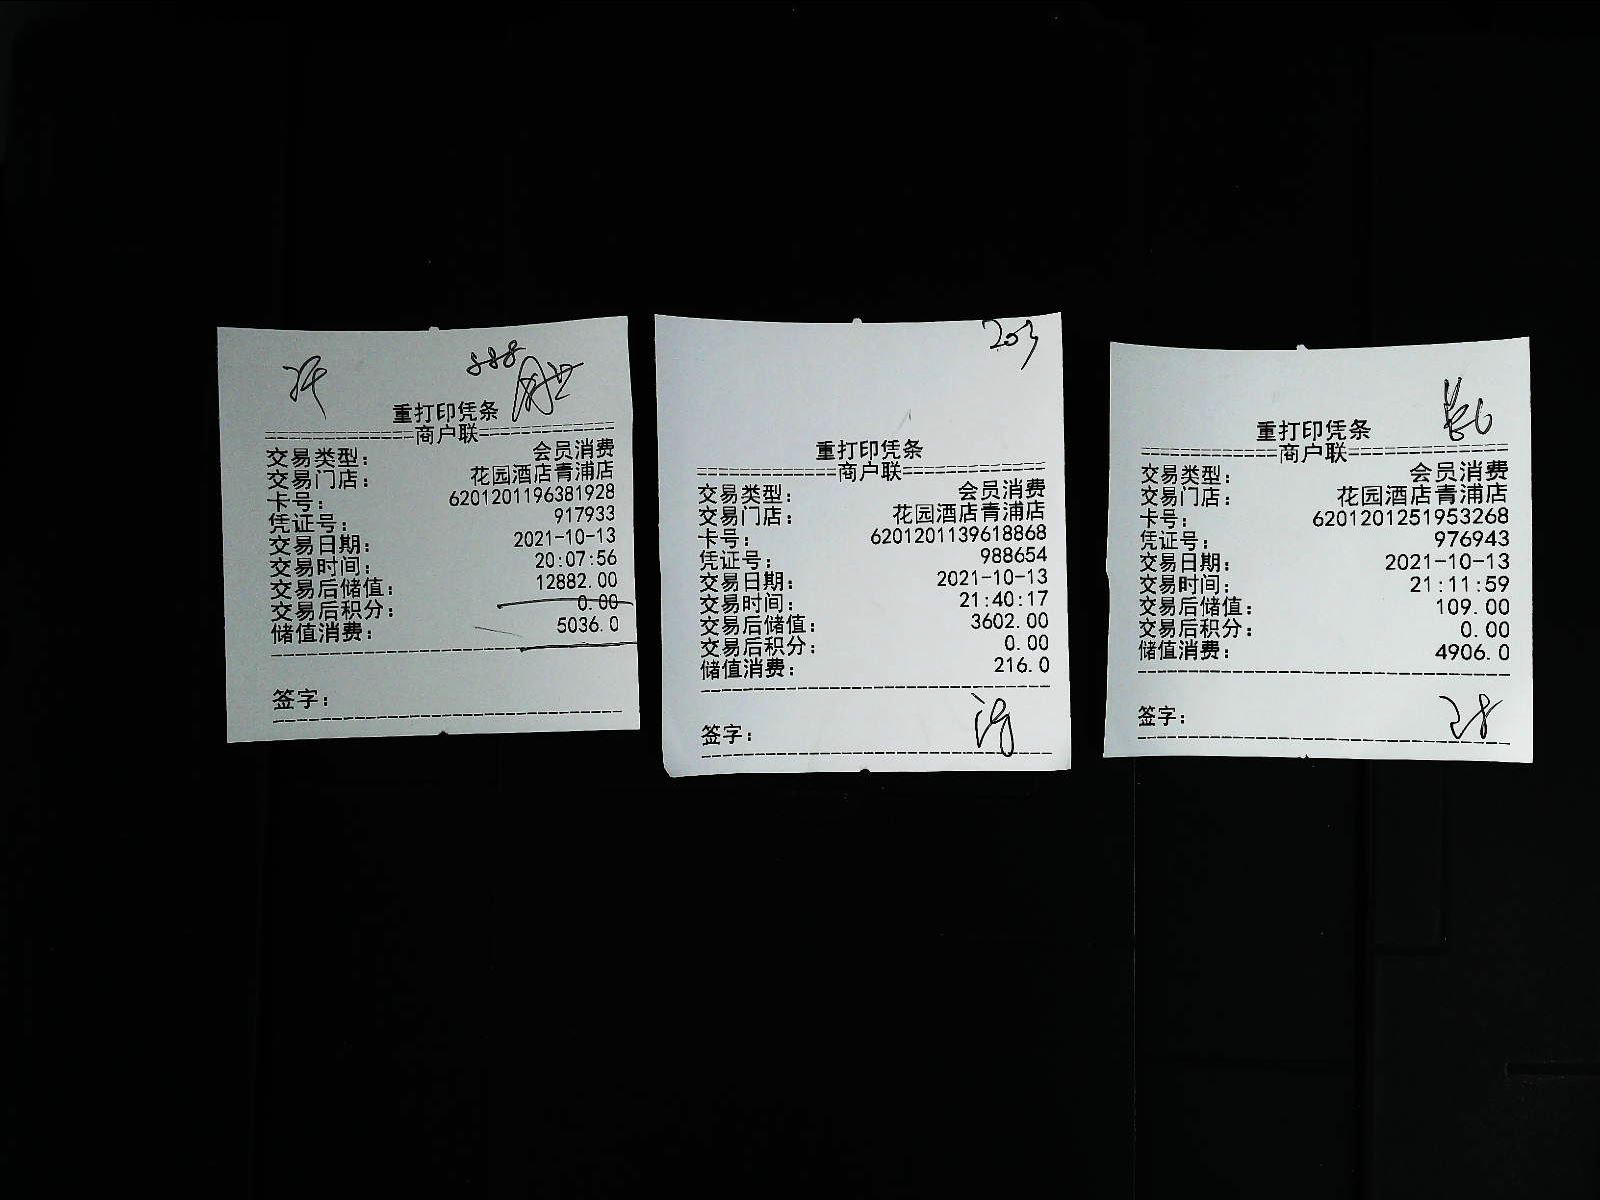 888
重打印凭条
================商户联================
交易类型: 会员消费
交易门店: 花园酒店青浦店
卡号: 6201201196381928
凭证号: 917933
交易日期: 2021-10-13
交易时间: 20:07:56
交易后储值: 12882.00
交易后积分: 0.00
储值消费: 5036.0
签字:
203
重打印凭条
================商户联================
交易类型: 会员消费
交易门店: 花园酒店青浦店
卡号: 6201201139618868
凭证号: 988654
交易日期: 2021-10-13
交易时间: 21:40:17
交易后储值: 3602.00
交易后积分: 0.00
储值消费: 216.0
签字:
重打印凭条
================商户联================
交易类型: 会员消费
交易门店: 花园酒店青浦店
卡号: 6201201251953268
凭证号: 976943
交易日期: 2021-10-13
交易时间: 21:11:59
交易后储值: 109.00
交易后积分: 0.00
储值消费: 4906.0
签字: